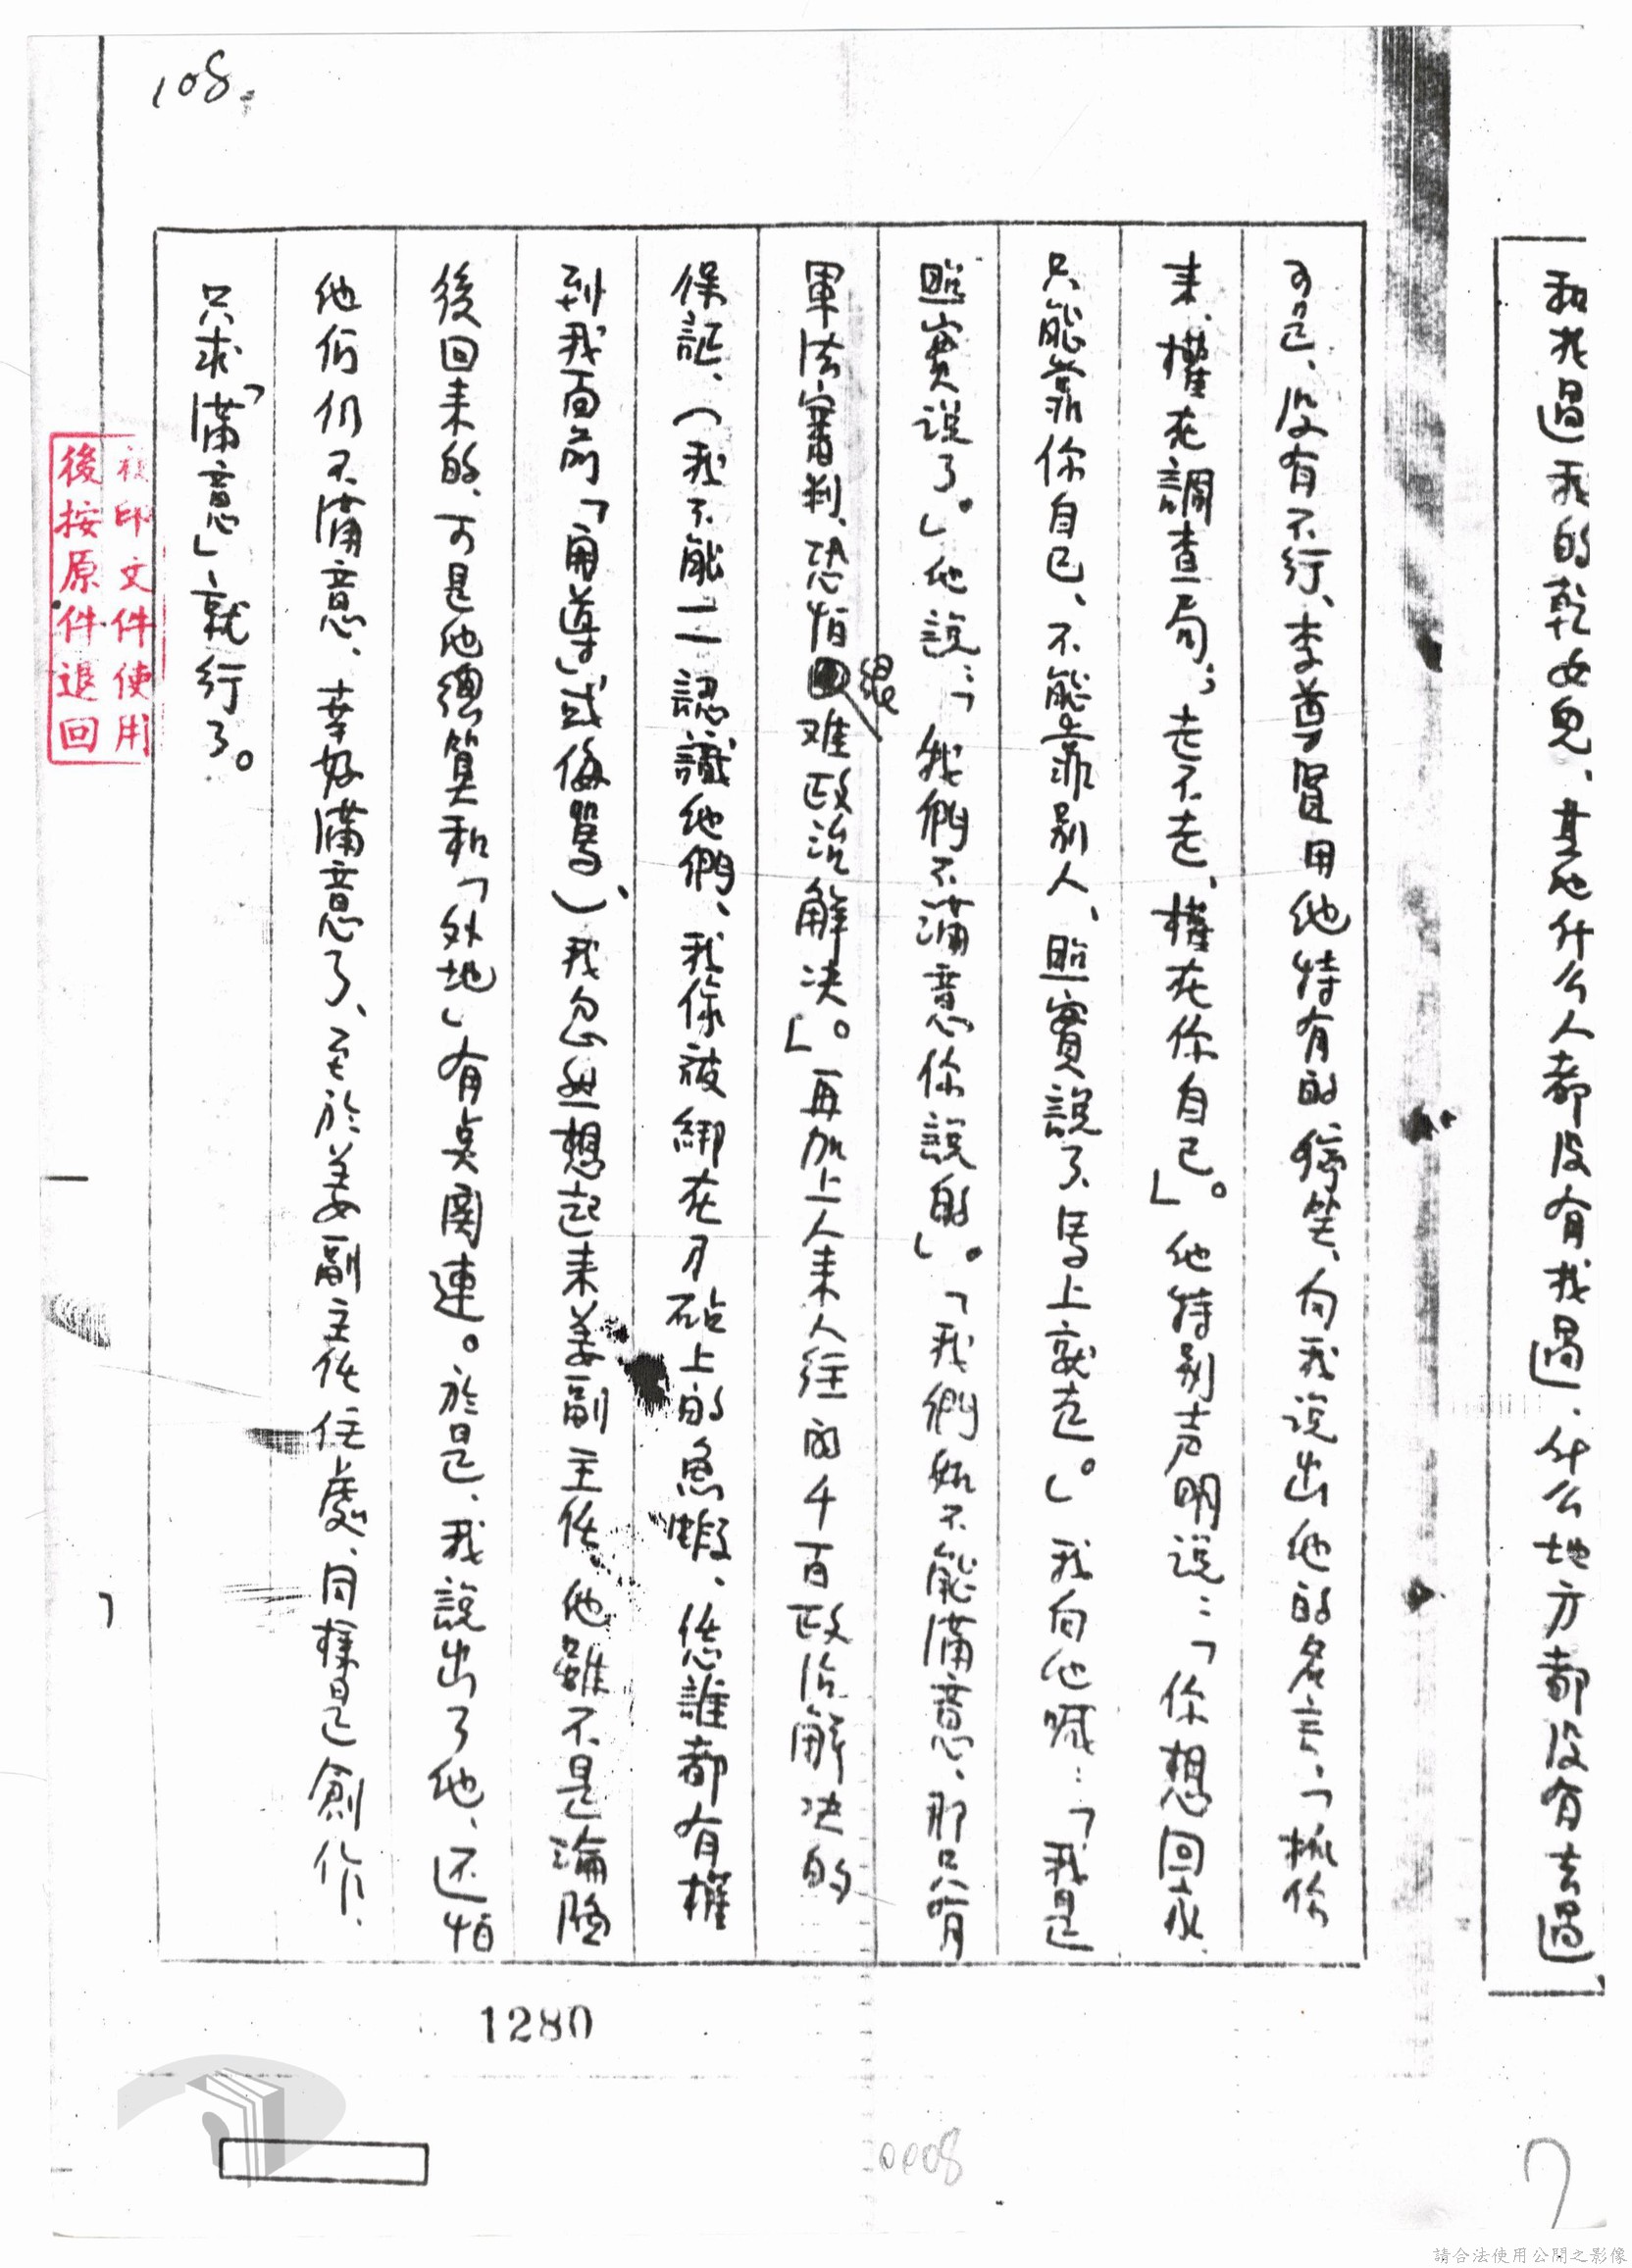 108.
和找過我的乾女兒、其他什么人都沒有找過、什么地方都沒有去過、
可是、沒有不行、李尊賢用他特有的獰笑、向我說出他的名言、「抓你
来、權在調查局；走不走、權在你自己」。他特别声明說：「你想回家、
只能靠你自己、不能靠别人、照實說了、馬上就走。」我向他喊：「我是
照實説了。」他説：「我們不滿意你説的」。「我們如不能滿意、那只有
軍法審判、恐怕很难政治解决」。再加上人来人往的千百政治解决的
保証、（我不能一一認識他們、我像被綁在刀砧上的魚蝦、任誰都有權
到我面前「開導」或侮罵、）我忽然想起来姜副主任、他雖不是淪陷
後回来的、可是他總算和「外地」有点関連。於是、我說出了他、还怕
他們仍不滿意、幸好滿意了、至於姜副主任住處、同樣是創作、
只求「滿意」就行了。
複印文件使用
後按原件退回
1280
7
請合法使用公開之影像